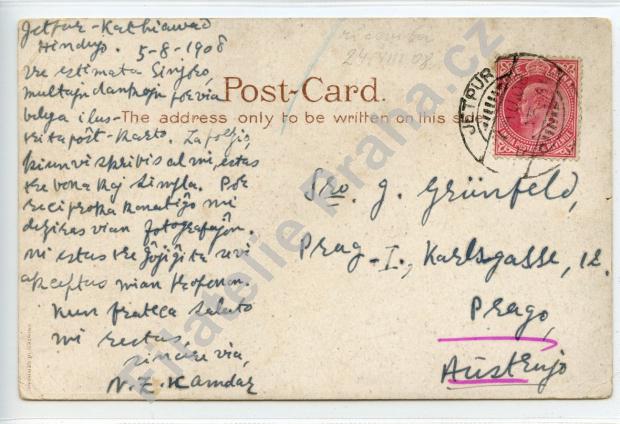 Jetpur-Kathiawad
Hindujo. 5-8-1908
Tre estimata Sinjoro,
multajn dankojn por via
belga ilus-
trita poŝt-karto. La poŝtfo,
kiun vi skribis al mi, estas
tre bona kaj simpla. Por
reciproka konatiĝo mi
deziras vian fotografaĵon.
mi estus tre ĝojiĝita se vi
akceptus mian proponon.
Kun frateca saluto
mi restas,
sincere via,
N. Z. Kamdar
ricevita
24.VIII 08
Post-Card.
The address only to be written on this side.
JETPUR
INDIA POSTAGE & REVENUE
Sro. J. Grünfeld,
Prag-I., Karlsgasse, 12.
Prago,
Aŭstrujo
Filatelie Praha.cz